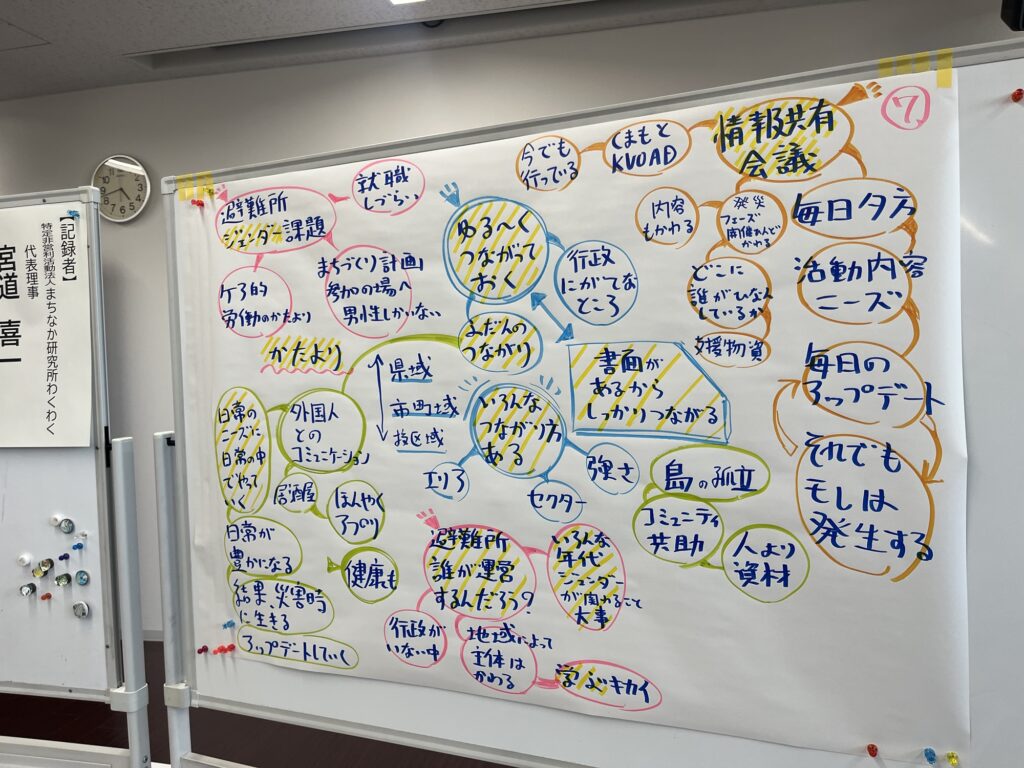 ⑦
情報共有
会議
くまもと
KVOAD
今でも
行っている
毎日夕方
発災
フェーズ
かわる
内容
もかわる
活動内容
ニーズ
どこに
誰がひなん
しているか
支援物資
毎日の
アップデート
それでも
モレは
発生する
避難所
ジェンダー課題
就職
しづらい
まちづくり計画
参加の場へ
男性しかいない
ケア的
労働のかたより
かたより
ゆる〜く
つながって
おく
行政
にがてな
ところ
ふだんの
つながり
書面が
あるから
しっかりつながる
県域
市町域
校区域
いろんな
つながり方
ある
エリア
セクター
強さ
日常の
ニーズに
日常の中
でやって
いく
外国人
との
コミュニケーション
居酒屋
ほんやく
アプリ
日常が
豊かになる
健康も
結果、災害時
に生きる
アップデートしていく
島の孤立
コミュニティ
共助
人より
資材
避難所
誰が運営
するんだろう?
いろんな
年代
ジェンダー
が関わること
大事
行政が
いない中
地域によって
主体は
かわる
学ぶキカイ
【記録者】
特定非営利活動法人まちなか研究所わくわく
代表理事
宮道 喜一